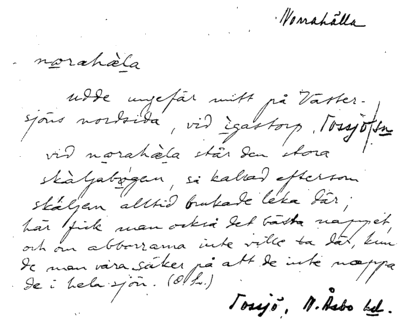 Norrahälla
norahàla
udde ungefär mitt på Väster-
sjöns nordsida, vid ìgastorp, Tossjö sn
vid norahàla står den stora
skàljabỳgen, så kallad eftersom
skáljan alltid brukade leka där;
här fick man också det bästa nappet,
och om abborrarna inte ville ta där, kun
de man vara säker på att de inte nappa
de i hela sjön. (O.L.)
Tossjö, N. Åsbo hd.